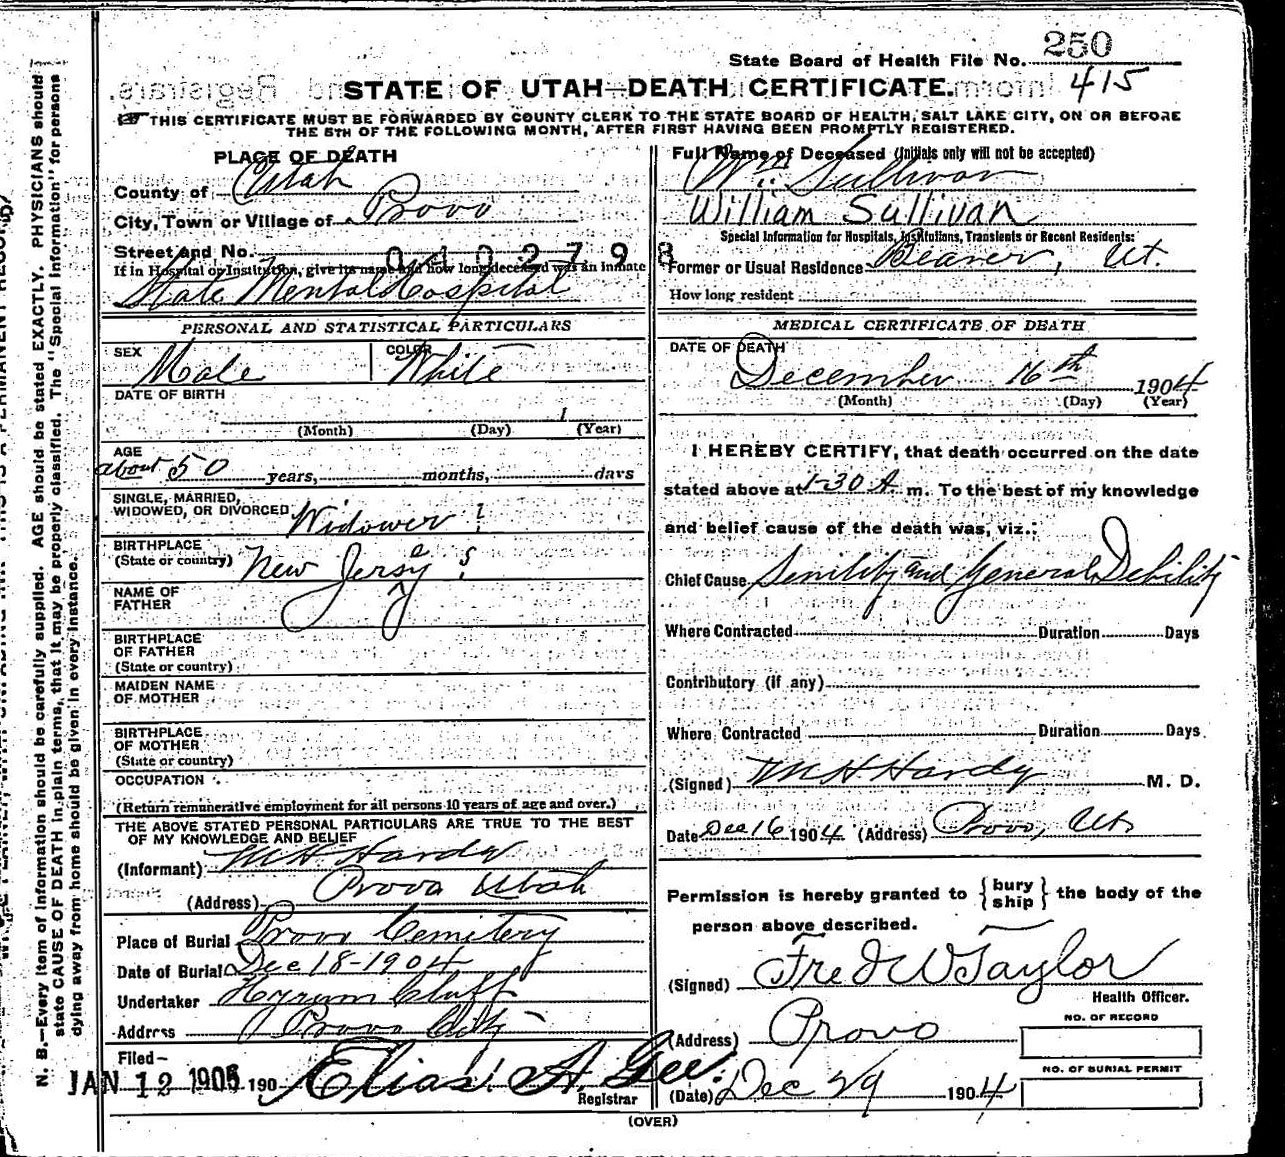 State Board of Health File No. 250
415
STATE OF UTAH—DEATH CERTIFICATE.
THIS CERTIFICATE MUST BE FORWARDED BY COUNTY CLERK TO THE STATE BOARD OF HEALTH, SALT LAKE CITY, ON OR BEFORE
THE 5TH OF THE FOLLOWING MONTH, AFTER FIRST HAVING BEEN PROMPTLY REGISTERED.
PLACE OF DEATH
County of Utah
City, Town or Village of Provo
Street and No.
0410279 8
If in Hospital or Institution, give its name and how long deceased was an inmate
State Mental Hospital
PERSONAL AND STATISTICAL PARTICULARS
SEX Male COLOR White
DATE OF BIRTH
1
(Month) (Day) (Year)
AGE
about 50 years, months, days
SINGLE, MARRIED,
WIDOWED, OR DIVORCED Widower ?
BIRTHPLACE
(State or country) New Jersey ?
NAME OF
FATHER
BIRTHPLACE
OF FATHER
(State or country)
MAIDEN NAME
OF MOTHER
BIRTHPLACE
OF MOTHER
(State or country)
OCCUPATION
(Return remunerative employment for all persons 10 years of age and over.)
THE ABOVE STATED PERSONAL PARTICULARS ARE TRUE TO THE BEST
OF MY KNOWLEDGE AND BELIEF
(Informant) M H Hardy
(Address) Provo Utah
Place of Burial Provo Cemitery
Date of Burial Dec 18-1904
Undertaker Hyrum Cluff
Address Provo City
Filed—
JAN 12 1905 190 Elias A. Gee.
Registrar
Full Name of Deceased (Initials only will not be accepted)
Wm Sullivan
William Sullivan
Special Information for Hospitals, Institutions, Transients or Recent Residents:
Former or Usual Residence Beaver, Ut.
How long resident
MEDICAL CERTIFICATE OF DEATH
DATE OF DEATH
December 16th 1904
(Month) (Day) (Year)
I HEREBY CERTIFY, that death occurred on the date
stated above at 1-30 A. m. To the best of my knowledge
and belief cause of the death was, viz.:
Chief Cause Senility and General Debility
Where Contracted Duration Days
Contributory (if any)
Where Contracted Duration Days
(Signed) M H Hardy M. D.
Date Dec 16 1904 (Address) Provo, Ut.
Permission is hereby granted to {bury
ship} the body of the
person above described.
(Signed) Fred W Taylor
Health Officer.
(Address) Provo
NO. OF RECORD
NO. OF BURIAL PERMIT
(Date) Dec 29 1904
(OVER)
N. B.—Every item of information should be carefully supplied. AGE should be stated EXACTLY. PHYSICIANS should
state CAUSE OF DEATH in plain terms, that it may be properly classified. The "Special Information" for persons
dying away from home should be given in every instance.